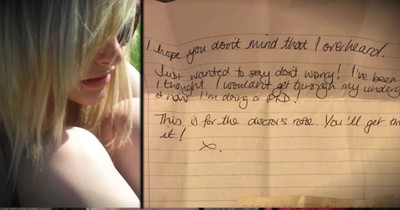 I hope you don't mind that I overheard.
Just wanted to say don't worry! I've been
I thought I wouldn't get through my underg
& now I'm doing a PhD!
This is for the doctor's note. You'll get th
it!
x.